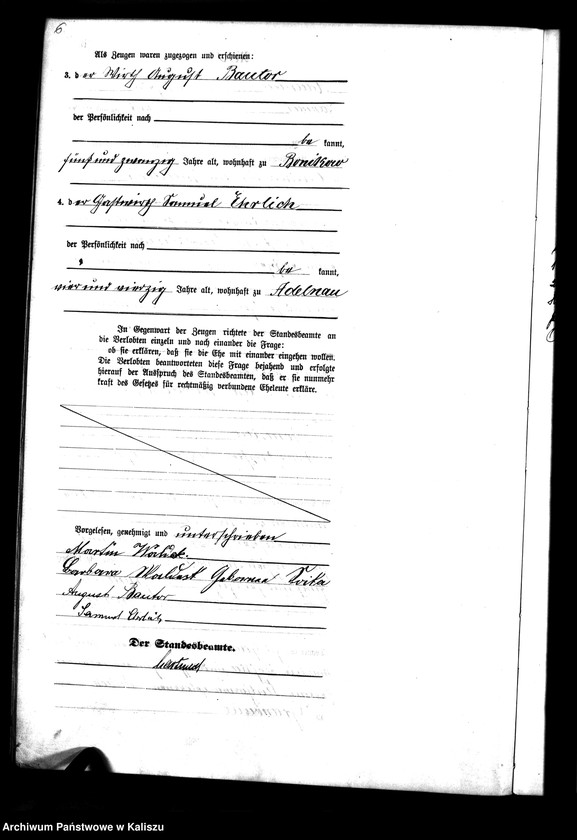 6
Als Zeugen waren zugezogen und erschienen:
3. der Wirth August Bautor
der Persönlichkeit nach
be kannt,
fünf und zwanzig Jahre alt, wohnhaft zu Bonikow
4. der Gastwirth Samuel Ehrlich
der Persönlichkeit nach
be kannt,
vier und vierzig Jahre alt, wohnhaft zu Adelnau
In Gegenwart der Zeugen richtete der Standesbeamte an
die Verlobten einzeln und nach einander die Frage:
ob sie erklären, daß sie die Ehe mit einander eingehen wollen.
Die Verlobten beantworteten diese Frage bejahend und erfolgte
hierauf der Ausspruch des Standesbeamten, daß er sie nunmehr
kraft des Gesetzes für rechtmäßig verbundene Eheleute erkläre.
Vorgelesen, genehmigt und unterschrieben
Martin
Barbara
August Bautor
Samuel Ehrlich
Der Standesbeamte.
Archiwum Państwowe w Kaliszu